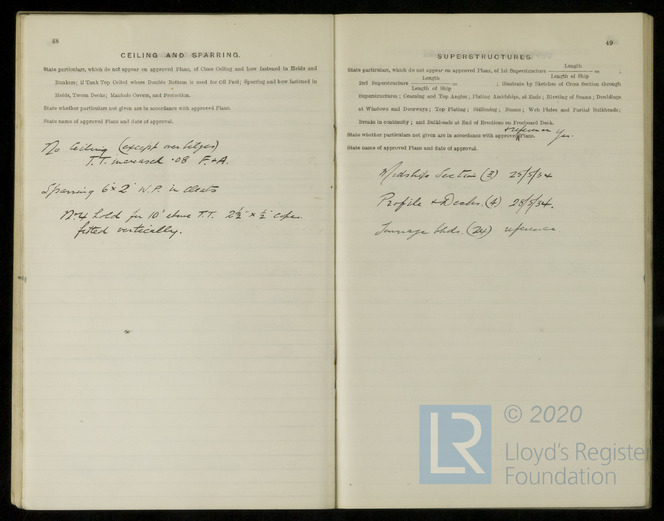 48
CEILING AND SPARRING.
State particulars, which do not appear on approved Plans, of Close Ceiling and how fastened in Holds and
Bunkers; if Tank Top Ceiled where Double Bottom is used for Oil Fuel; Sparring and how fastened in
Holds, Tween Decks; Manhole Covers, and Protection.
State whether particulars not given are in accordance with approved Plans.
State name of approved Plans and date of approval.
No Ceiling (except over bilges)
T.T. increased .08 F.&A.
Sparring 6"x 2" W.P. in cleats
No 4 hold for 10' above T.T. 2½" x ½" copes
fitted vertically.
49
SUPERSTRUCTURES
State particulars, which do not appear on approved Plans, of 1st Superstructure Length / Length of Ship = ;
2nd Superstructure Length / Length of Ship = ; illustrate by Sketches of Cross Section through
Superstructures; Coaming and Top Angles; Plating Amidships, at Ends; Riveting of Seams; Doublings
at Windows and Doorways; Top Plating; Stiffening; Beams; Web Plates and Partial Bulkheads;
Breaks in continuity; and Bulkheads at End of Erections on Freeboard Deck.
State whether particulars not given are in accordance with approved Plans. reference Yes.
State name of approved Plans and date of approval.
Midships Section (3) 25/5/34
Profile & Decks. (4) 25/5/34.
Tonnage bhds. (24) reference
© 2020
LR
Lloyd's Register
Foundation